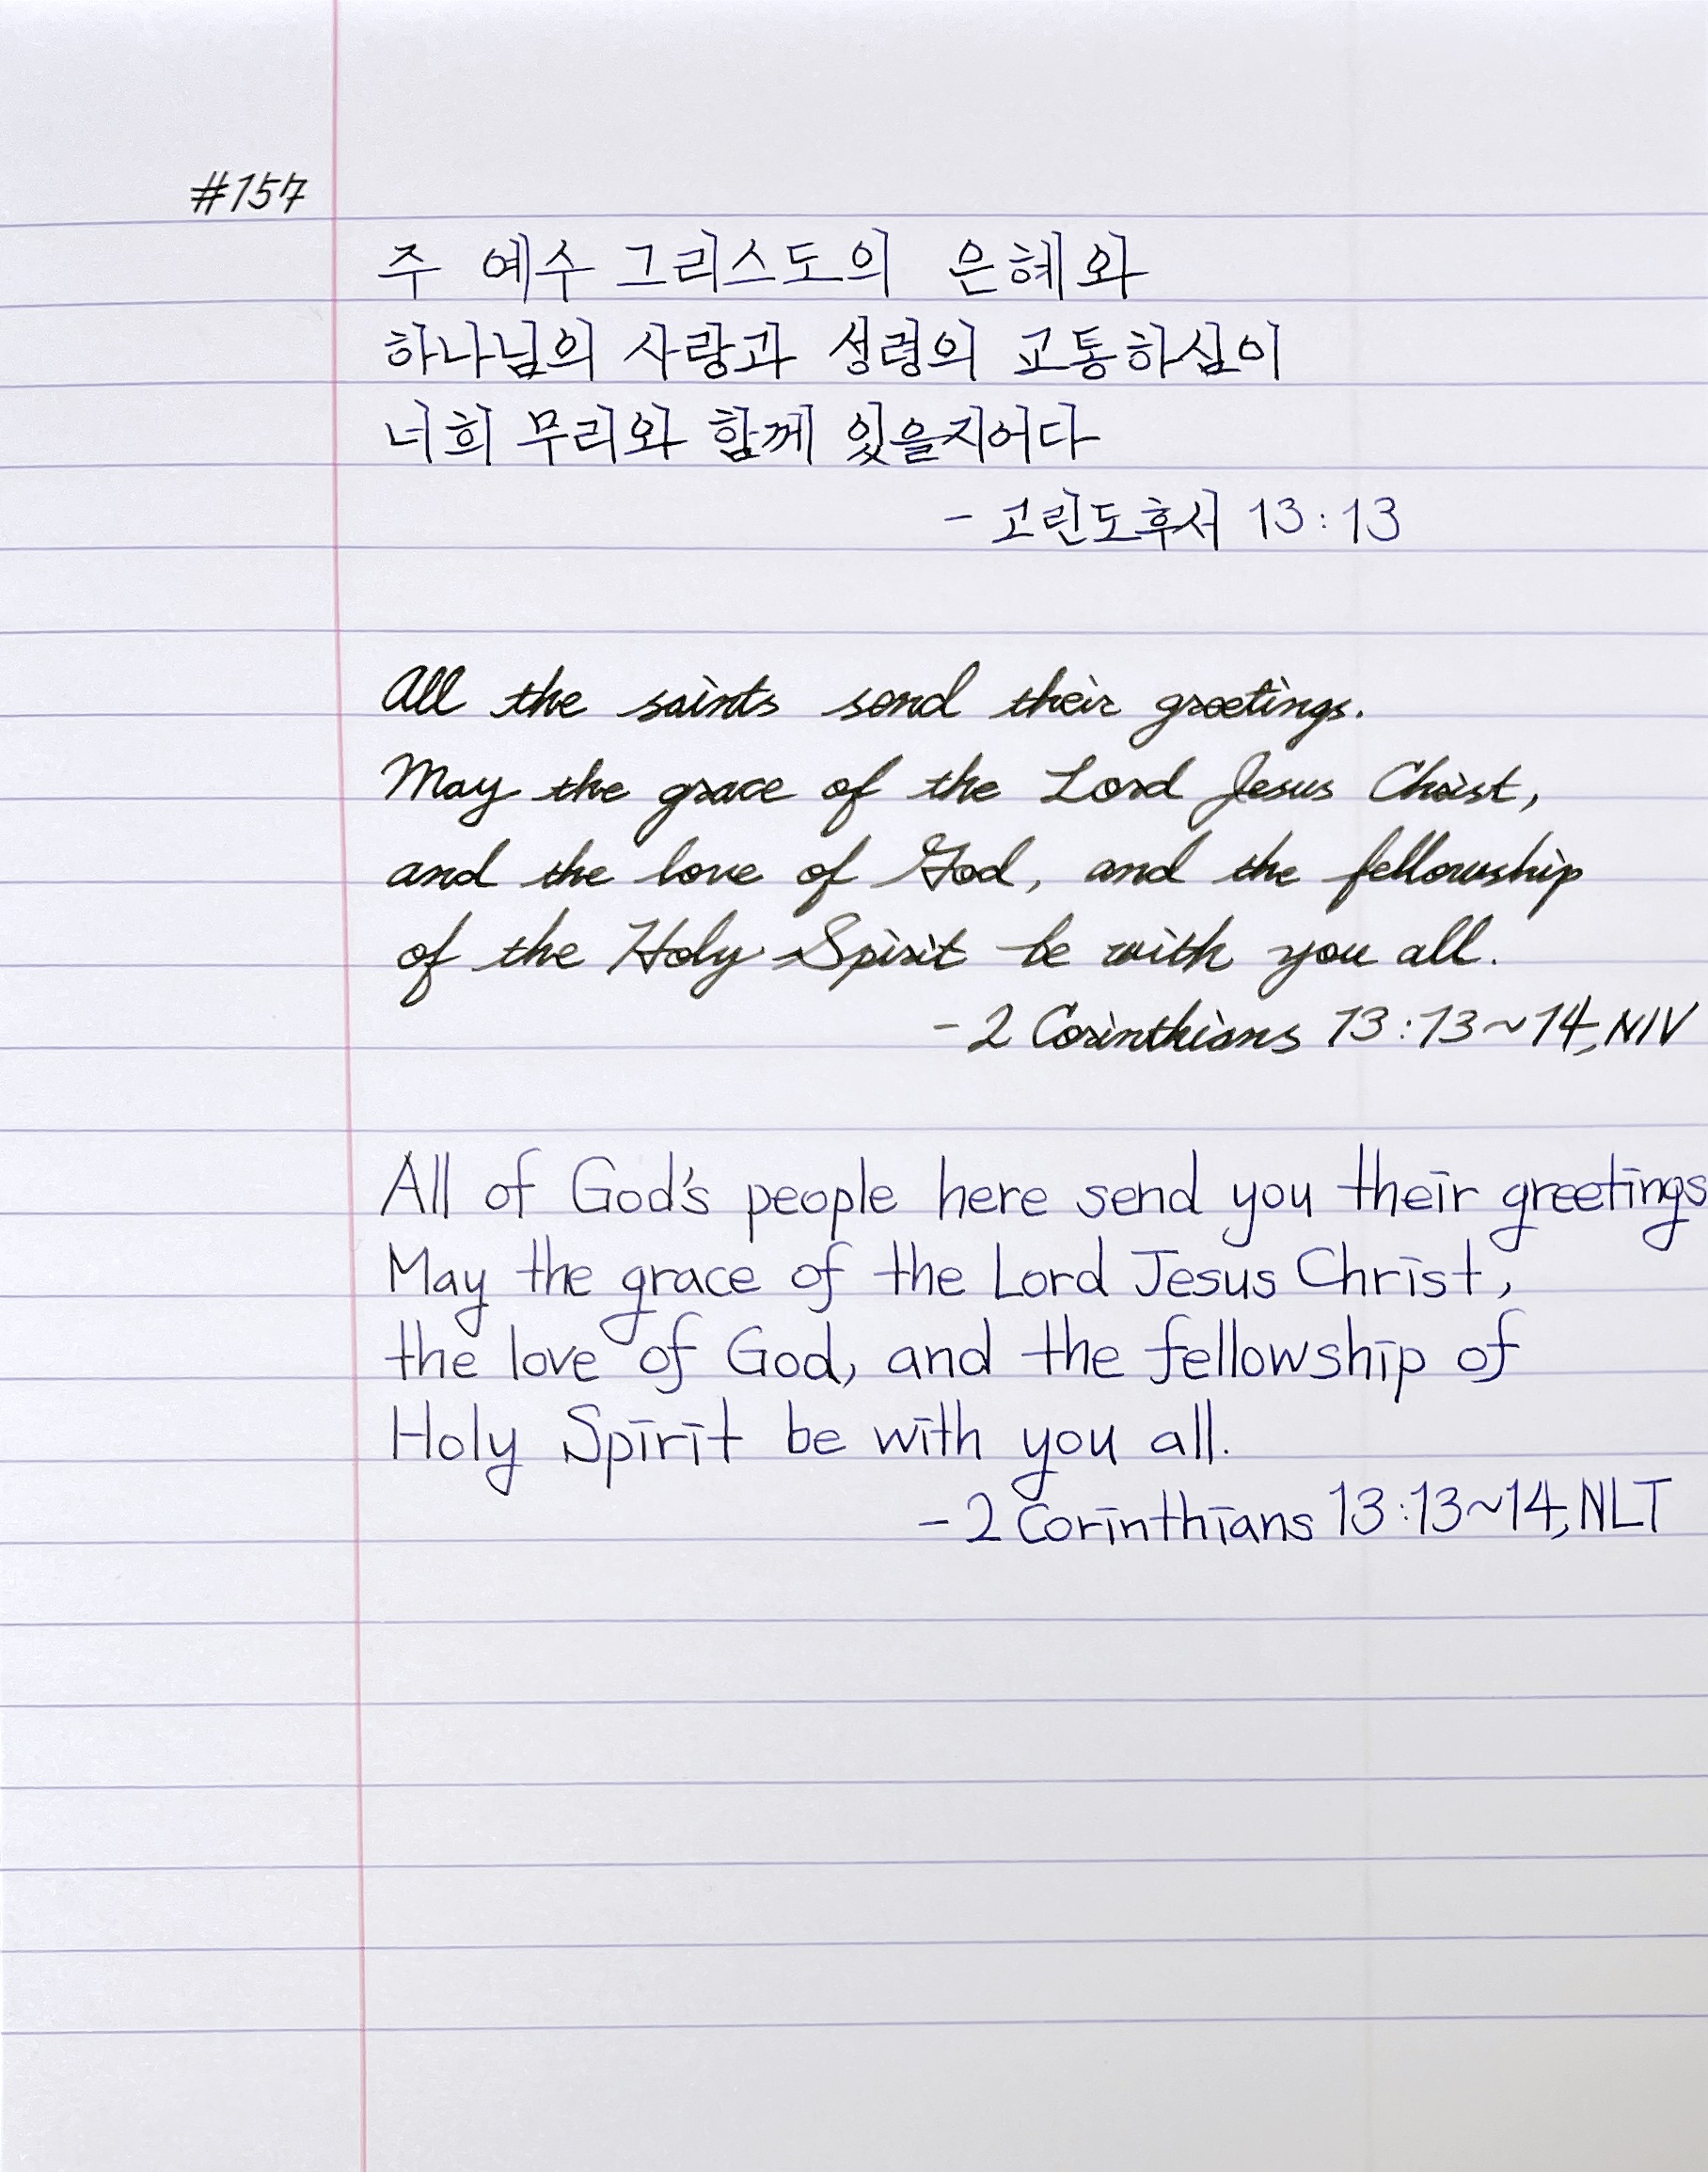 #157
주 예수 그리스도의 은혜와
하나님의 사랑과 성령의 교통하심이
너희 무리와 함께 있을지어다
- 고린도후서 13:13
All the saints send their greetings.
May the grace of the Lord Jesus Christ,
and the love of God, and the fellowship
of the Holy Spirit be with you all.
- 2 Corinthians 13:13~14, NIV
All of God's people here send you their greetings
May the grace of the Lord Jesus Christ,
the love of God, and the fellowship of
Holy Spirit be with you all.
- 2 Corinthians 13:13~14, NLT